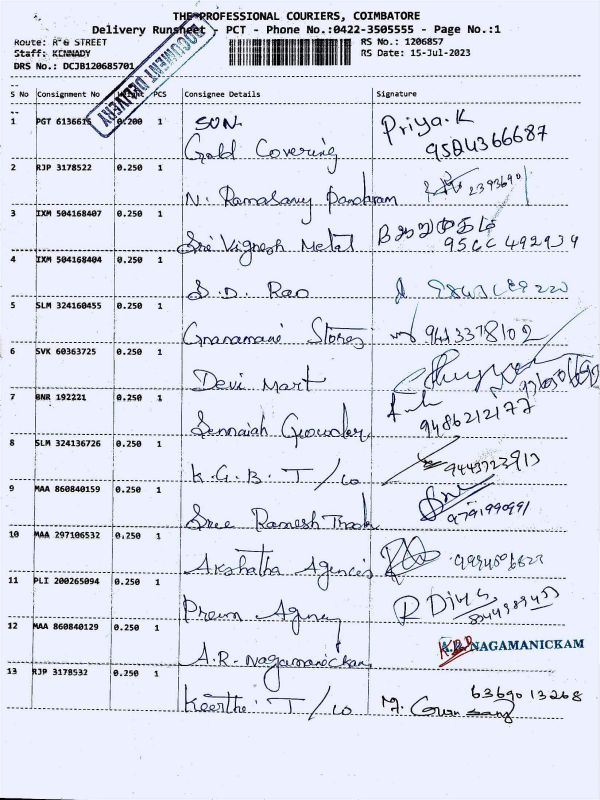 THE PROFESSIONAL COURIERS, COIMBATORE
Delivery Runsheet - PCT - Phone No.:0422-3505555 - Page No.:1
Route: R G STREET
RS No.: 1206857
Staff: KENNADY
RS Date: 15-Jul-2023
DRS No.: DCJB120685701
DOCUMENT DELIVERY
S No Consignment No Weight PCS Consignee Details Signature
1 PGT 6136615 0.200 1 SUN Priya.K
Gold Covering
2 RJP 3178522 0.250 1
N. Ramasamy Pandaram
3 IXM 504168407 0.250 1
Sri Vignesh Metal
4 IXM 504168404 0.250 1
S.D. Rao
5 SLM 324160455 0.250 1
Gnanamani Stores 9443378102
6 SVK 60363725 0.250 1
Devi Mart
7 BNR 192221 0.250 1
Sennaiah Gounder 9486212177
8 SLM 324136726 0.250 1
K.G.B. T/co 9443723913
9 MAA 860840159 0.250 1
Sree Ramesh 9791990991
10 MAA 297106532 0.250 1
Akshatha Agencies
11 PLI 200265094 0.250 1
Prem Agency R Diya
12 MAA 860840129 0.250 1
A.R. NAGAMANICKAM
A.R. Nagamanickam
13 RJP 3178532 0.250 1 6369013268
Keerthi T/co